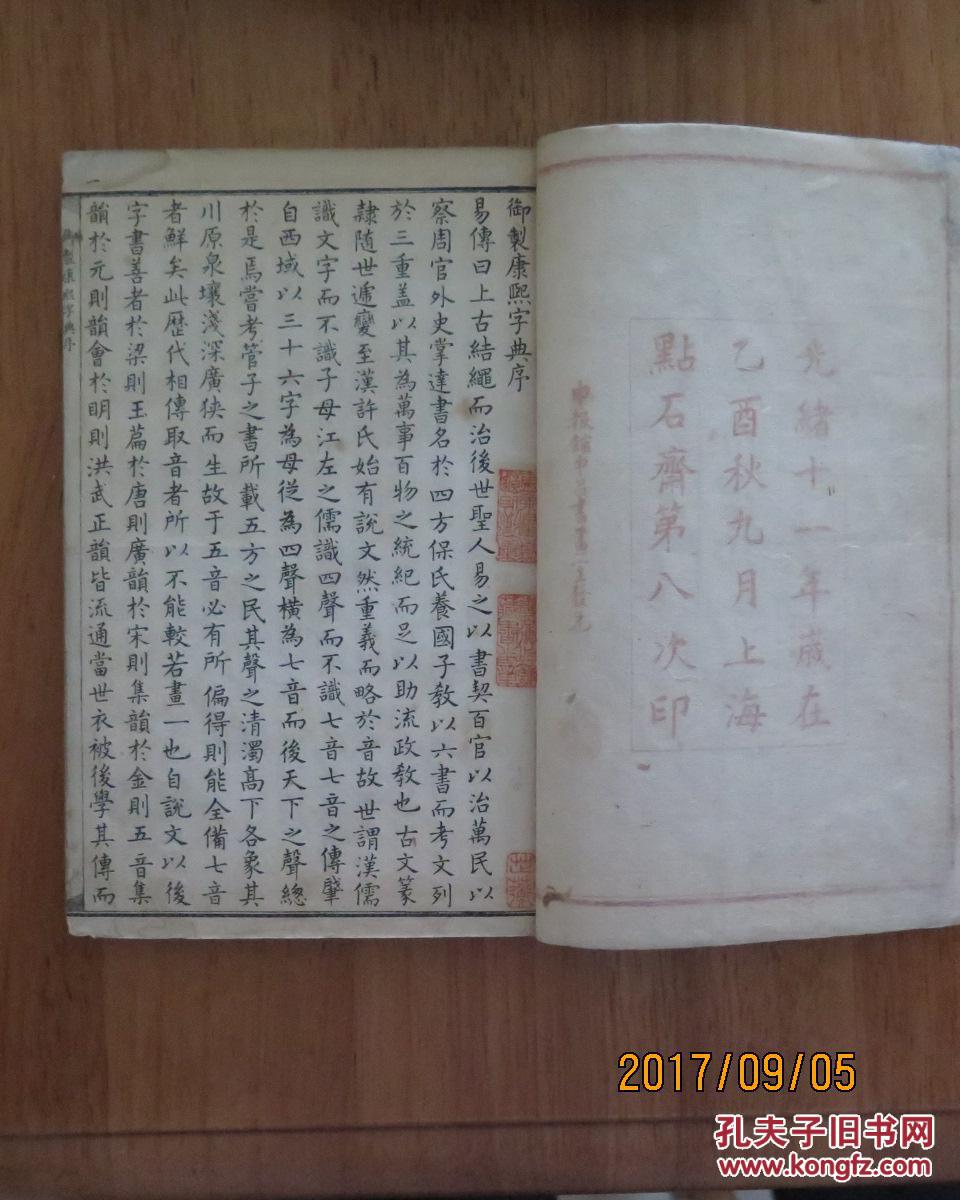 光緒十一年歲在
乙酉秋九月上海
點石齋第八次印
御製康熙字典序
易傳曰上古結繩而治後世聖人易之以書契百官以治萬民以
察周官外史掌達書名於四方保氏養國子教以六書而考文列
於三重蓋以其為萬事百物之統紀而足以助流政教也古文篆
隷随世遞變至漢許氏始有說文然重義而略於音故世謂漢儒
識文字而不識子母江左之儒識四聲而不識七音七音之傳肇
自西域以三十六字為母從為四聲横為七音而後天下之聲總
於是焉嘗考管子之書所載五方之民其聲之清濁高下各象其
川原泉壤淺深廣狹而生故于五音必有所偏得則能全備七音
者鮮矣此歷代相傳取音者所以不能較若畫一也自說文以後
字書善者於梁則玉篇於唐則廣韻於宋則集韻於金則五音集
韻於元則韻會於明則洪武正韻皆流通當世衣被後學其傳而
2017/09/05
孔夫子旧书网
www.kongfz.com